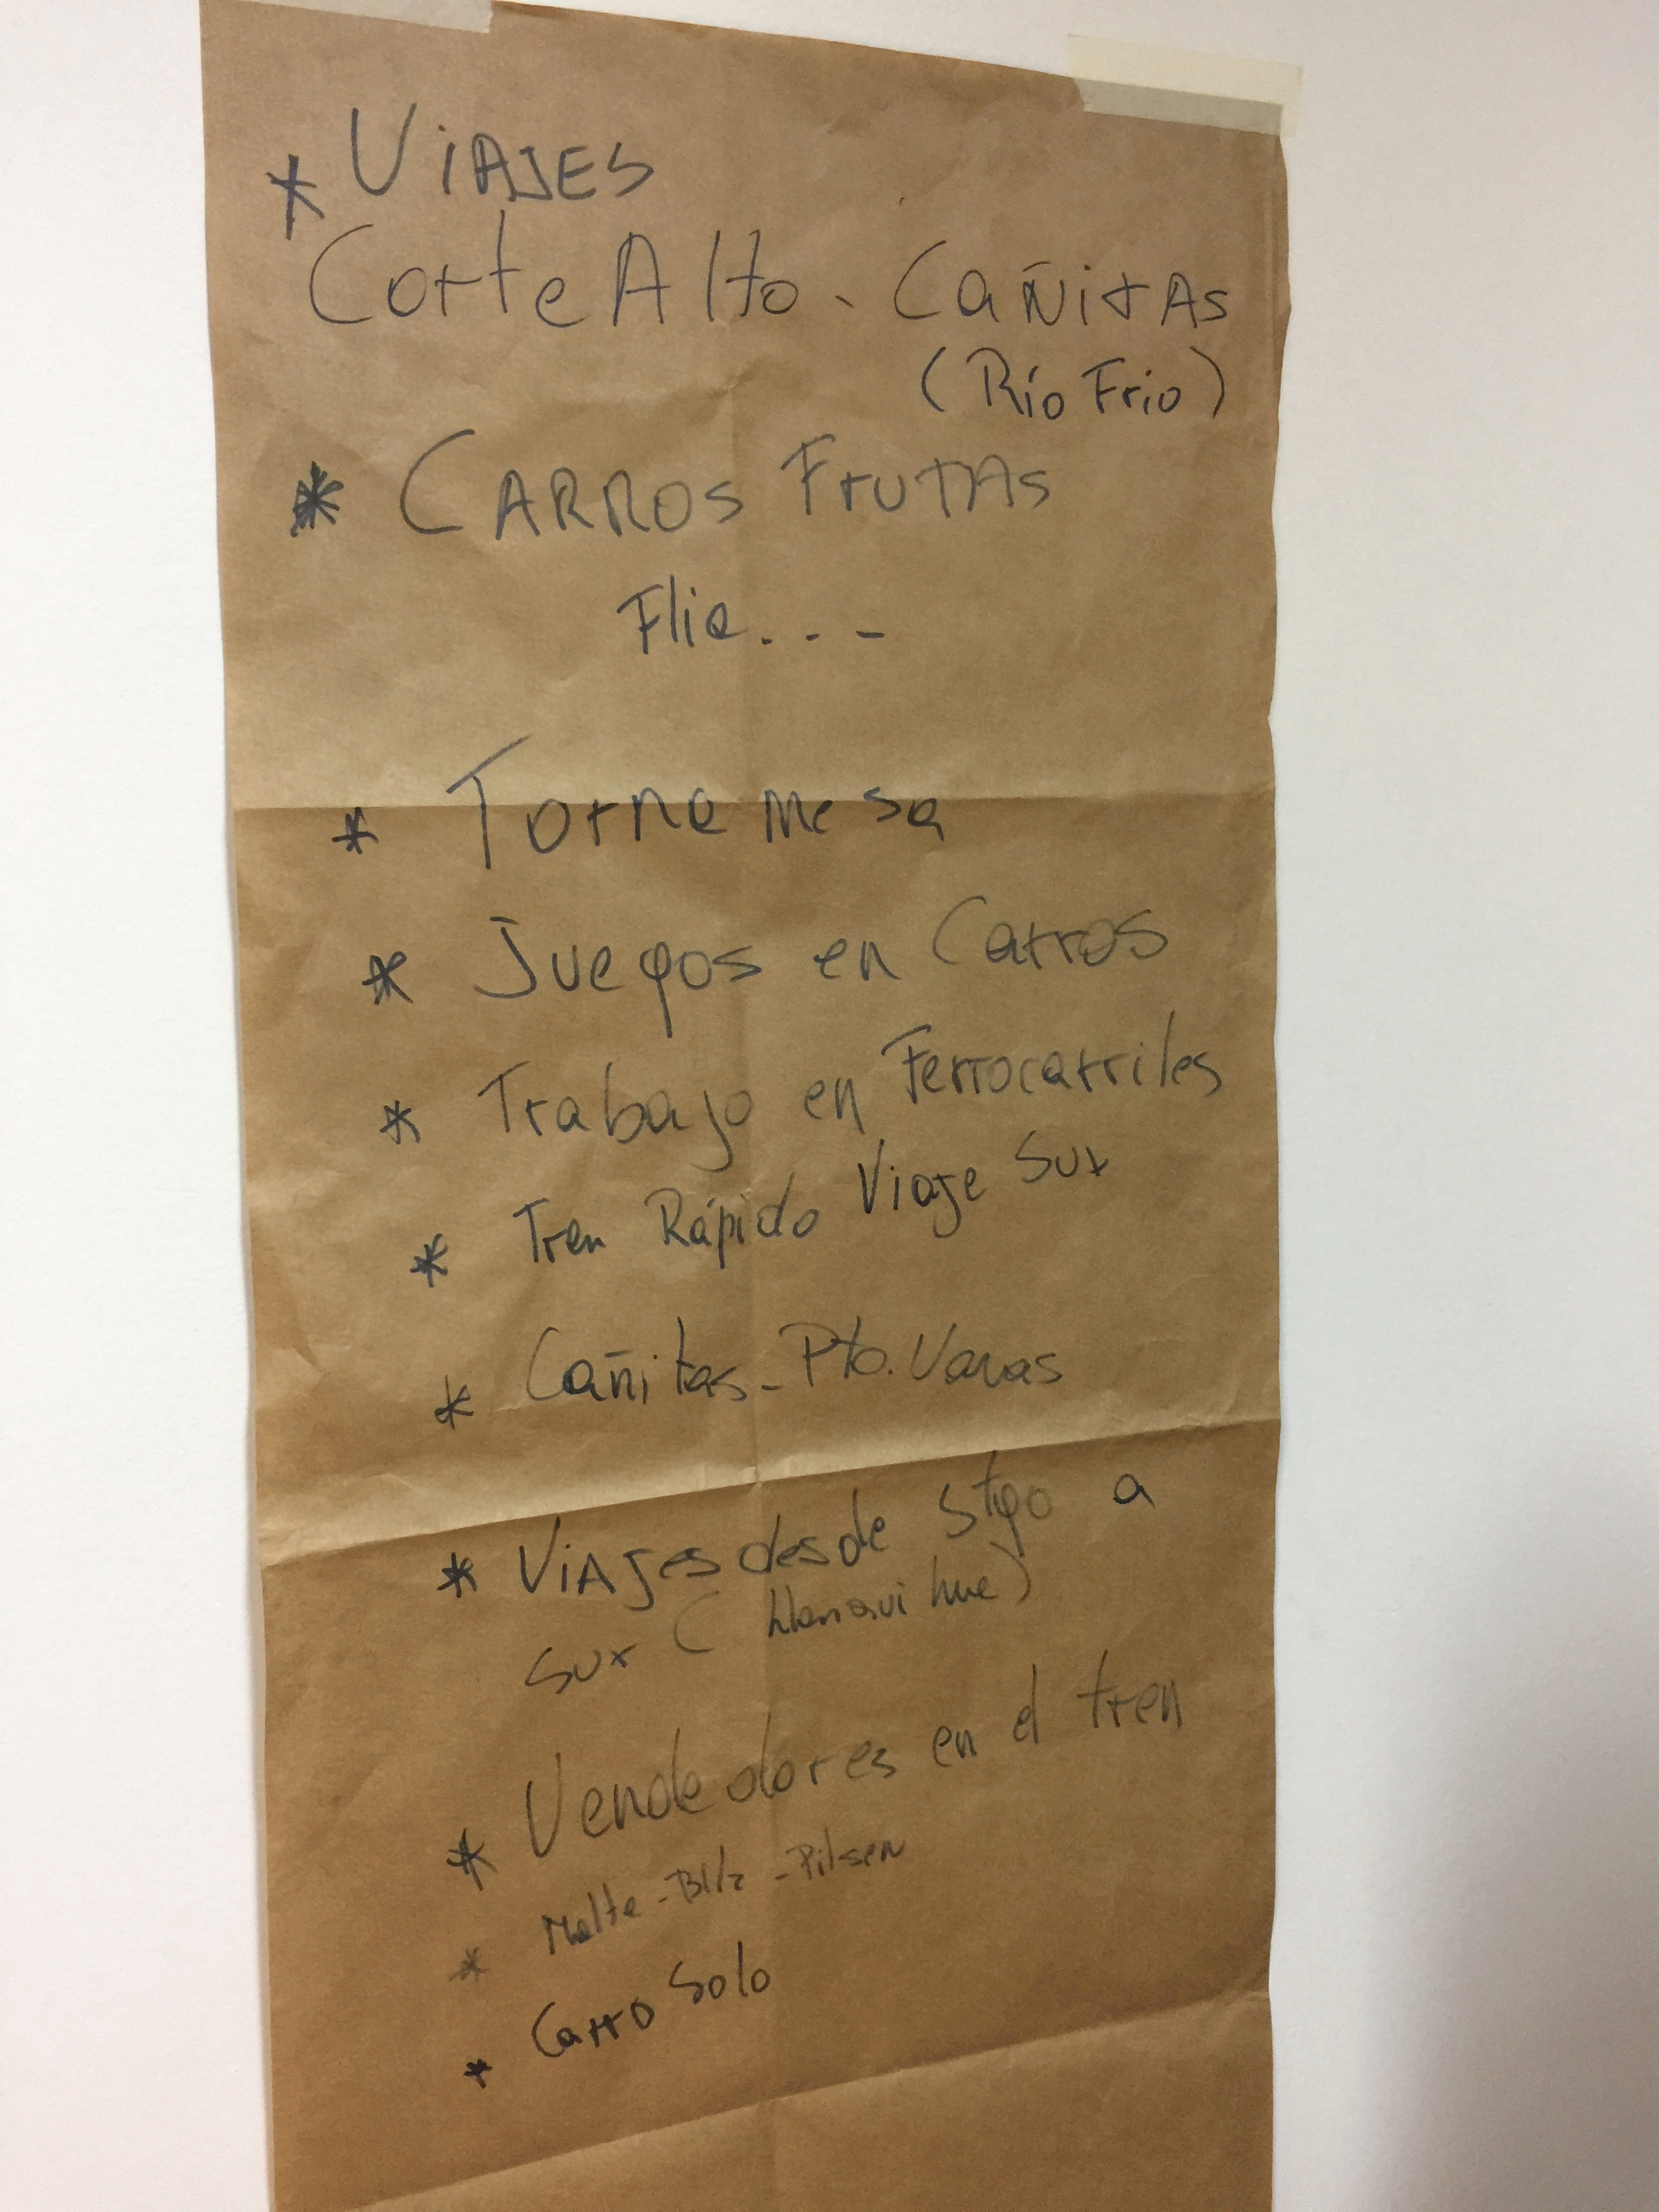 * VIAJES
Corte Alto - CAÑitAS
(Río Frio)
* CARROS FruTAS
Flia. . . -
* Tornamesa
* Juegos en Carros
* Trabajo en Ferrocarriles
* Tren Rápido Viaje Sur
* Cañitas - Pto. Varas
* ViAJes desde Stgo a
Sur (Llanquihue)
* Vendedores en el tren
* Malta - Bilz - Pilsen
* Carro Solo